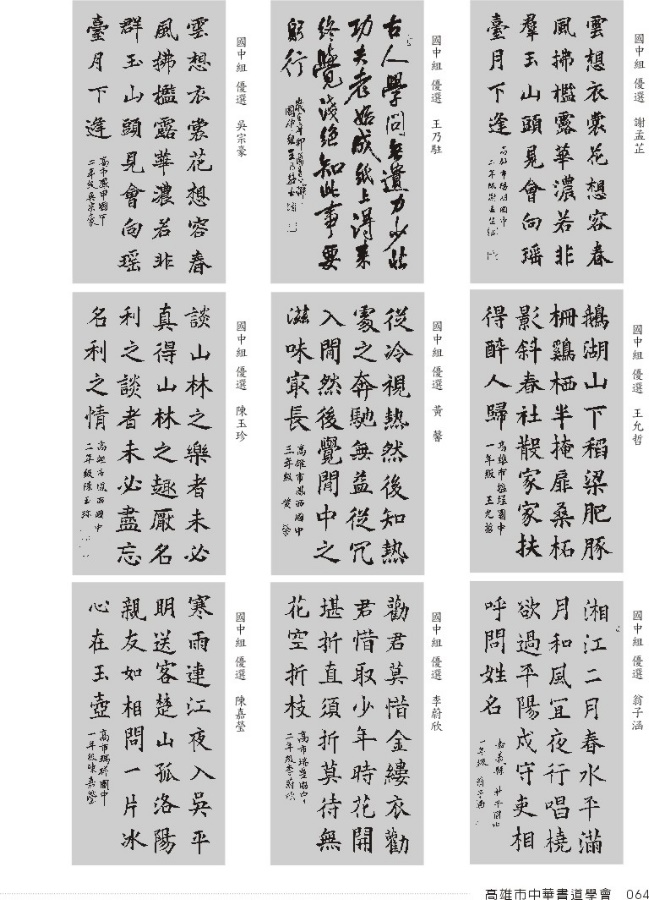 國中組 優選 謝孟芷
雲想衣裳花想容春
風拂檻露華濃若非
羣玉山頭見會向瑶
臺月下逢
國中組 優選 王乃駐
古人學問無遺力少壯
功夫老始成紙上得来
終覺淺絕知此事要
躬行
國中組 優選 吳宗豪
雲想衣裳花想容春
風拂檻露華濃若非
群玉山頭見會向瑶
臺月下逢
高市鳳甲國中
二年級吳宗豪
國中組 優選 王允哲
鵝湖山下稻梁肥豚
柵鷄栖半掩扉桑柘
影斜春社散家家扶
得醉人歸
國中
一年級 王允哲
國中組 優選 黃 馨
從冷視熱然後知熱
處之奔馳無益從冗
入閒然後覺閒中之
滋味㝡長
高雄市鳳西國中
三年級 黃 馨
國中組 優選 陳玉珍
談山林之樂者未必
真得山林之趣厭名
利之談者未必盡忘
名利之情
高雄市鳳西國中
二年級陳玉珍
國中組 優選 翁子涵
湘江二月春水平滿
月和風宜夜行唱橈
欲過平陽戍守吏相
呼問姓名
一年級 翁子涵
國中組 優選 李蔚欣
勸君莫惜金縷衣勸
君惜取少年時花開
堪折直須折莫待無
花空折枝
二年級李蔚欣
國中組 優選 陳嘉瑩
寒雨連江夜入吳平
明送客楚山孤洛陽
親友如相問一片冰
心在玉壺
國中
一年級陳嘉瑩
高雄市中華書道學會 064